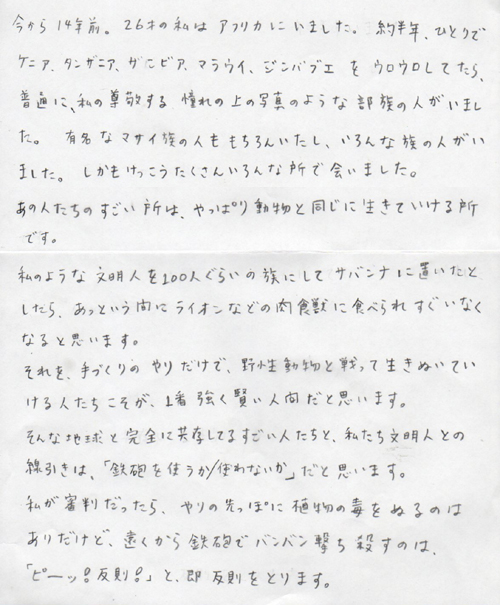 今から14年前。26才の私はアフリカにいました。約半年、ひとりで
ケニア、タンザニア、ザンビア、マラウイ、ジンバブエをウロウロしてたら、
普通に、私の尊敬する憧れの上の写真のような部族の人がいまし
た。有名なマサイ族の人ももちろんいたし、いろんな族の人がい
ました。しかもけっこうたくさんいろんな所で会いました。
あの人たちのすごい所は、やっぱり動物と同じに生きていける所
です。
私のような文明人を100人ぐらいの族にしてサバンナに置いたと
したら、あっという間にライオンなどの肉食獣に食べられすぐいなく
なると思います。
それを、手づくりのやりだけで、野性動物と戦って生きぬいてい
ける人たちこそが、1番強く賢い人間だと思います。
そんな地球と完全に共存してるすごい人たちと、私たち文明人との
線引きは、「鉄砲を使うか/使わないか」だと思います。
私が審判だったら、やりの先っぽに植物の毒をぬるのは
ありだけど、遠くから鉄砲でバンバン撃ち殺すのは、
「ピーッ！反則！」と、即反則をとります。